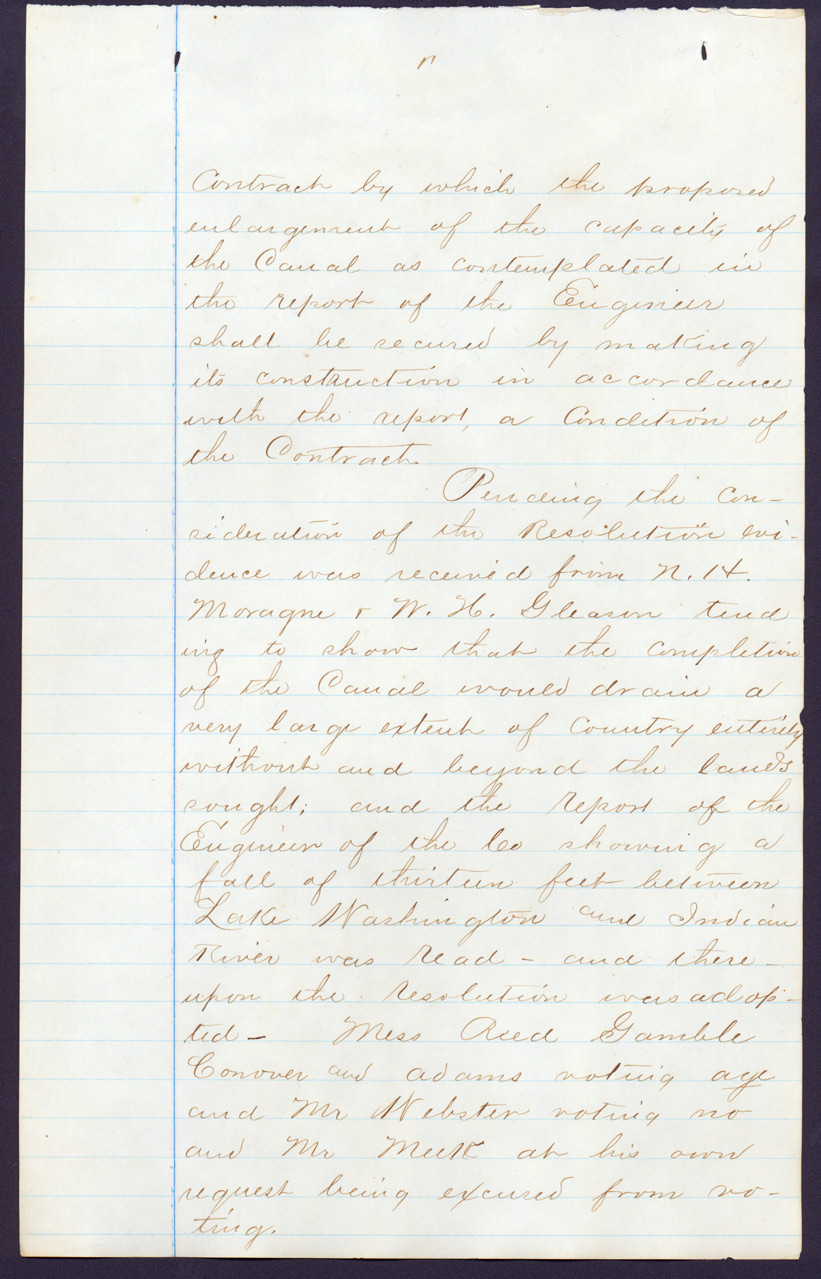 Contract by which the proposed
enlargement of the capacity of
the Canal as contemplated in
the report of the Engineer
shall be secured by making
its construction in accordance
with the report, a Condition of
the Contract.
Pending the Con-
sideration of the Resolution evi-
dence was received from N. H.
Moragne & W. H. Gleason tend
ing to show that the completion
of the Canal would drain a
very large extent of Country entirely
without and beyond the lands
sought; and the report of the
Engineer of the Co showing a
fall of thirteen feet between
Lake Washington and Indian
River was read - and there-
upon the resolution was adop-
ted - Mess Reed Gamble
Conover and Adams voting aye
and Mr Webster voting no
and Mr Meek at his own
request being excused from vo-
ting.